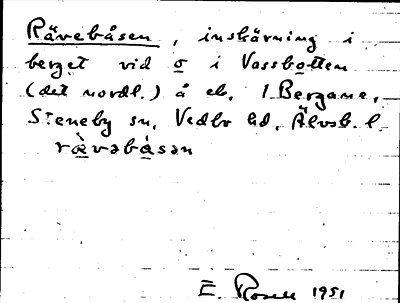 Rävebåsen, inskärning i
berget vid o i Vassbotten
(det nordl.) å eb. 1 Bergane,
Steneby sn, Vedbo hd, Älvsb. l.
rä̀vəbåsən
E. Rosell 1951